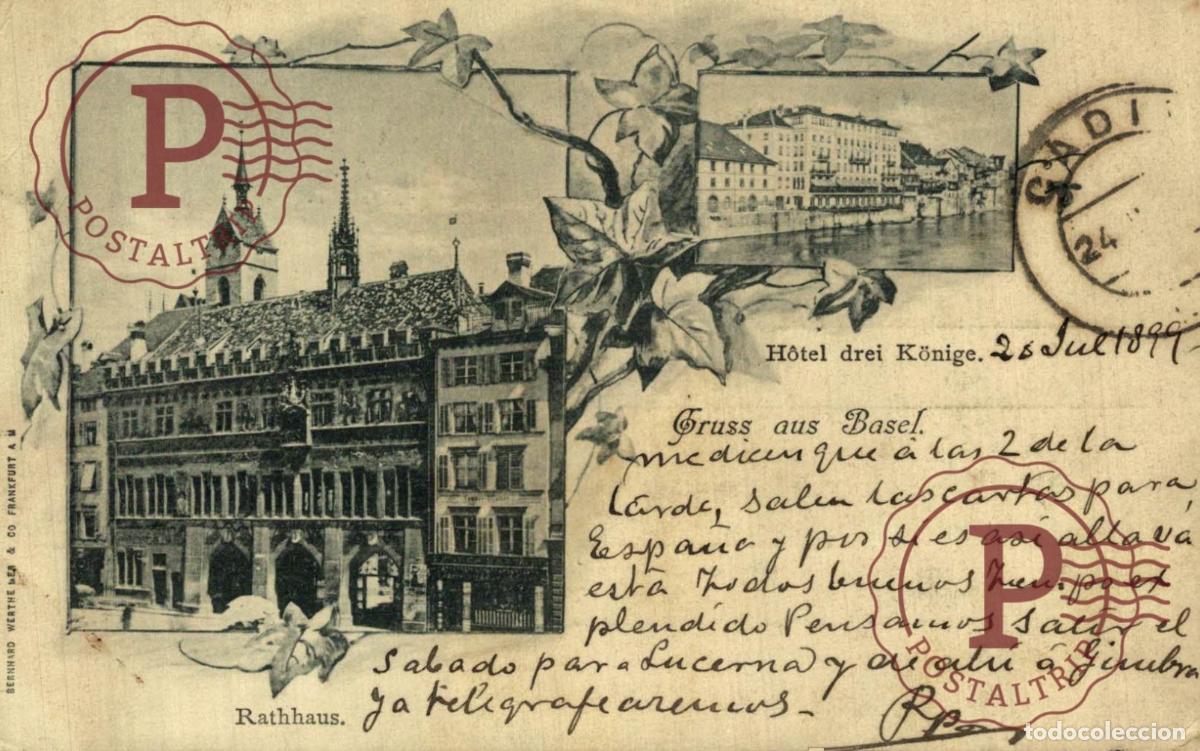 P
POSTALTRIP
CADI
24
Hôtel drei Könige.
Jul 1899
Gruss aus Basel.
me dicen que á las 2 de la
tarde, salen las cartas para
España y por si es asi alla vá
esta Todos buenos Tiempo ex
plendido Pensamos salir el
Sabado para Lucerna y de alli á Ginebra
Ya telegrafearemos-
Rathhaus.
P
POSTALTRIP
BERNHARD WERTHE BER & CO FRANKFURT A M
todocoleccion